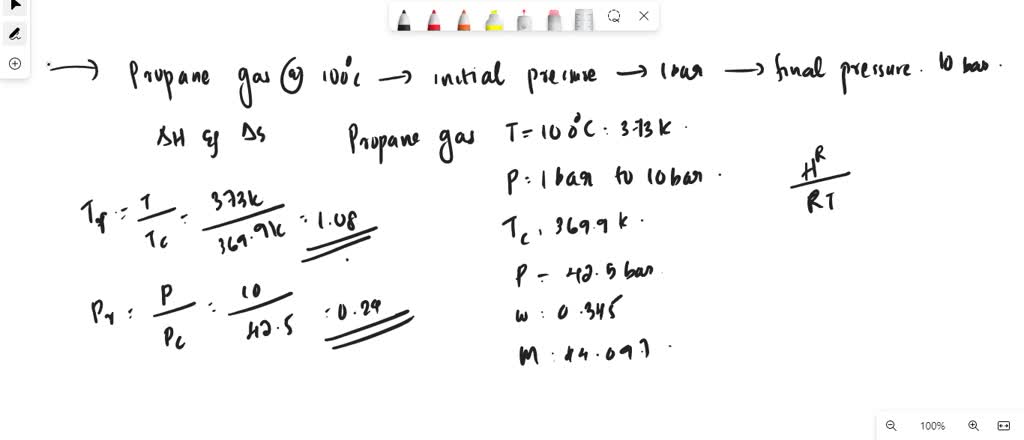 → Propane gas @ 100°C → initial pressure → 1 bar → final pressure. 10 bar.
ΔH & ΔS Propane gas T = 100°C : 373 K.
P : 1 bar to 10 bar.
Tr = T/Tc = 373K/369.9K = 1.08
Tc : 369.9 K.
P = 42.5 bar
Pr : P/Pc = 10/42.5 = 0.24
w : 0.345
M : 44.097
H^R/RT
100%